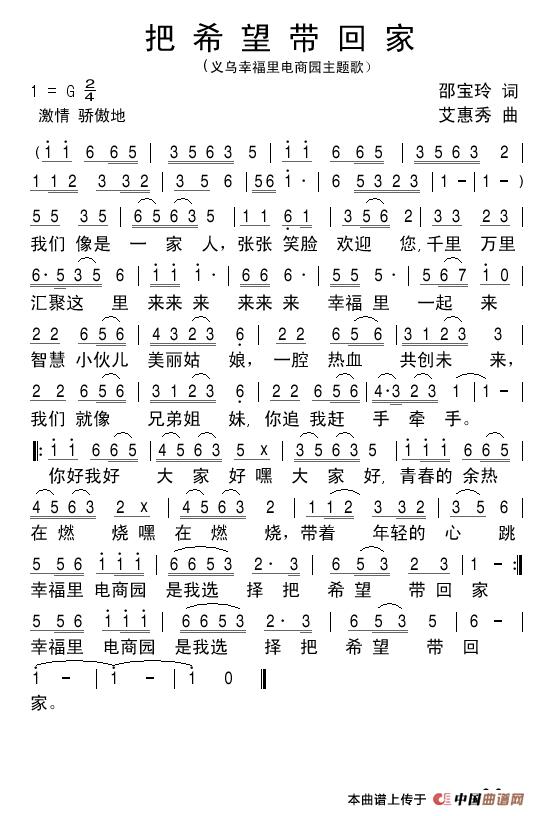 把希望带回家
（义乌幸福里电商园主题歌）
1 = G 2/4
邵宝玲 词
激情 骄傲地
艾惠秀 曲
( 1 1 6 6 5 | 3 5 6 3 5 | 1 1 6 6 5 | 3 5 6 3 2 |
1 1 2 3 3 2 | 3 5 6 | 5 6 1 · 6 | 5 3 2 3 | 1 - | 1 - )
5 5 3 5 | 6 5 6 3 5 | 1 1 6 1 | 3 5 6 2 | 3 3 2 3 |
我们 像是 一 家 人, 张张 笑脸 欢迎 您, 千里 万里
6 · 5 3 5 6 | 1 1 1 · | 6 6 6 · | 5 5 5 · | 5 6 7 1 0 |
汇聚这 里 来来 来 来来 来 幸福 里 一起 来
2 2 6 5 6 | 4 3 2 3 6 | 2 2 6 5 6 | 3 1 2 3 3 |
智慧 小伙儿 美丽姑 娘, 一腔 热血 共创未 来,
2 2 6 5 6 | 3 1 2 3 6 | 2 2 6 5 6 | 4 · 3 2 3 1 | 1 - |
我们 就像 兄弟姐 妹, 你追 我赶 手 牵 手。
‖: 1 1 6 6 5 | 4 5 6 3 5 x | 3 5 6 3 5 | 1 1 1 6 6 5 |
你好我好 大 家 好 嘿 大 家 好, 青春的 余热
4 5 6 3 2 x | 4 5 6 3 2 | 1 1 2 3 3 2 | 3 5 6 |
在 燃 烧 嘿 在 燃 烧, 带着 年轻的 心 跳
5 5 6 1 1 1 | 6 6 5 3 2 · 3 | 6 5 3 2 2 | 1 - :‖
幸福里 电商园 是我选 择 把 希 望 带 回 家
5 5 6 1 1 1 | 6 6 5 3 2 · 3 | 6 5 3 5 6 |
幸福里 电商园 是我选 择 把 希 望 带 回
1 - | 1 - | 1 0 ‖
家。
本曲谱上传于 中国曲谱网